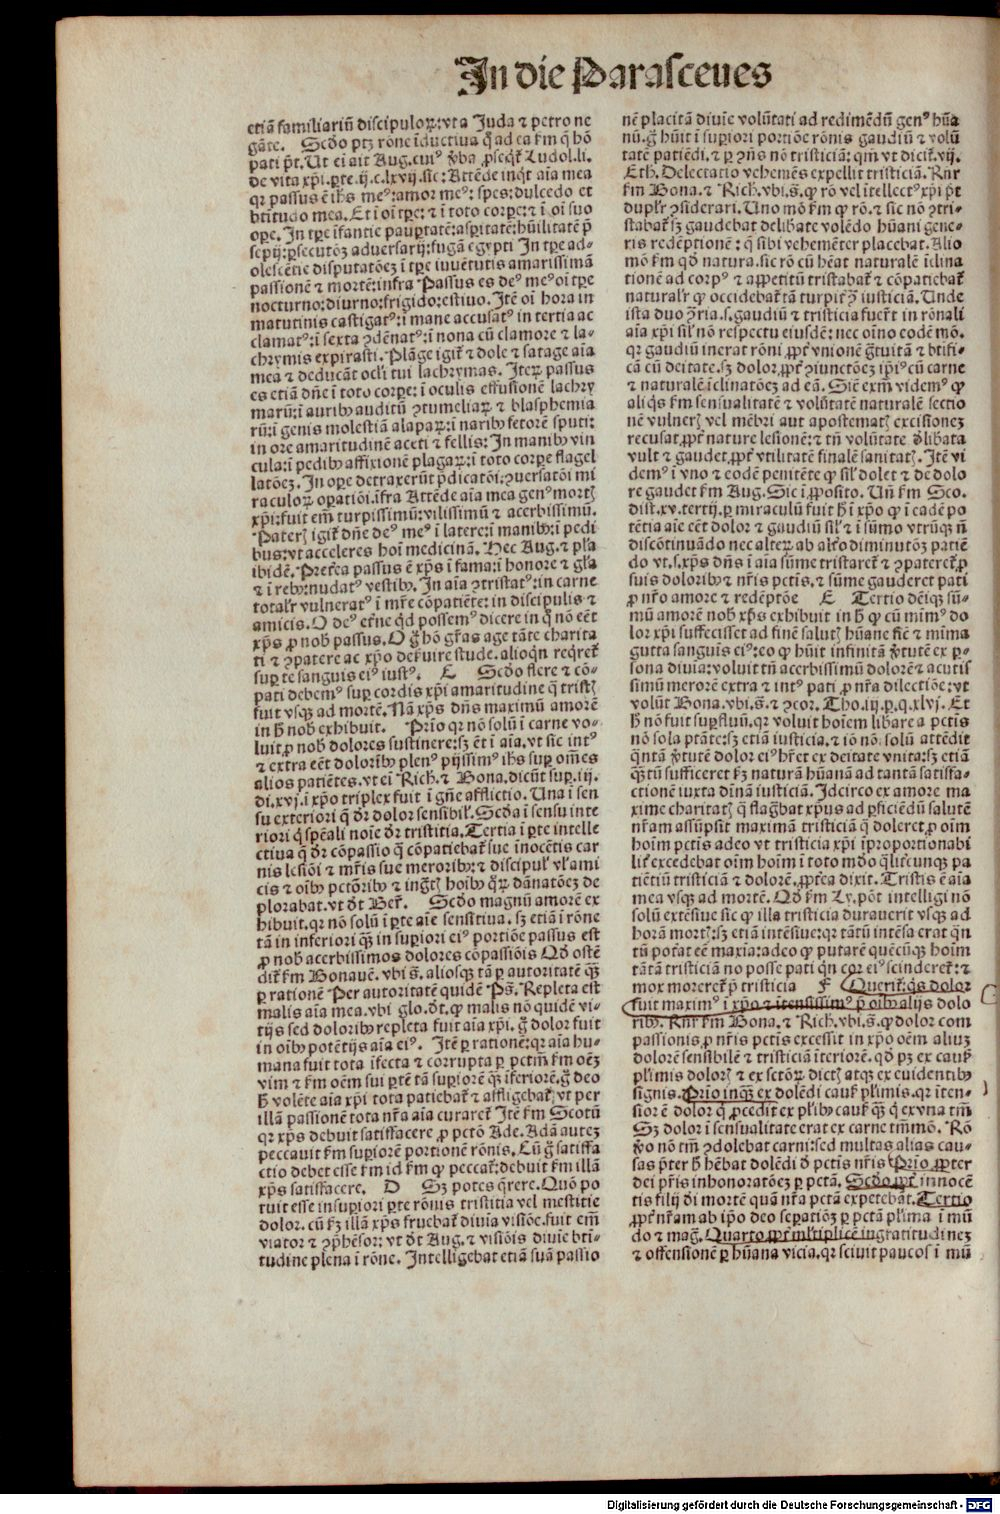 In die Parasceues
etiā familiariū discipuloꝝ: vta Juda ⁊ petro ne
gāte. Scḋo ptꝫ rōne īductiua q̄ ad ea ẜm q̄ hō
pati pt̄. Ut ei ait Aug. cuiꝰ v̓ba ꝓseqt̉ Ludol. li.
de vita xp̄i. ꝑte. ij. c. lxvij. sic: Attēde inqt̉ aīa mea
qꝛ passus ē ih̄s meꝰ: amor meꝰ: spes: dulcedo et
btītudo mea. Et ī oī tꝑe: ⁊ ī toto corꝑe: ⁊ ī oī suo
oꝑe. In tꝑe īfantie pauꝑtatē: asꝑitatē: hūilitatē p̄
sepij: ꝑsecutōꝫ aduersarij: fugā egypti In tꝑe ad-
olescētie disputatōeꝫ ī tꝑe iuuētutis amarissimā
passionē ⁊ mortē: infra Passus es deꝰ meꝰ oī tꝑe
nocturno: diurno: frigido: estiuo. Itē oī hora in
matutinis castigatꝰ: ī mane accusatꝰ in tertia ac
clamatꝰ: ī sexta ꝯdēnatꝰ: ī nona cū clamore ⁊ la-
chrymis expirasti. Plāge igit̉ ⁊ dole ⁊ satage aīa
mea ⁊ deducāt ocl̉i tui lachrymas. Iteꝝ passus
es etiā dn̄e ī toto corꝑe: ī oculis effusionē lachry
marū: ī auribꝰ auditū ꝯtumeliaꝝ ⁊ blasphemia
rū: ī genis molestiā alapaꝝ: ī naribꝰ fetorē sputi:
in ore amaritudinē aceti ⁊ fellis: In manibꝰ vin
cula: ī pedibꝰ affixionē plagaꝝ: ī toto corꝑe flagel
latōeꝫ. In oꝑe detraxerūt p̄dicatōi: ꝯuersatōi mi
raculoꝝ oꝑatiōi. īfra Attēde aīa mea genꝰ mortꝭ
xp̄i: fuit em̄ turpissimū: vilissimū ⁊ acerbissimū.
Paterꝭ igit̉ dn̄e deꝰ meꝰ ī latere: ī manibꝰ: ī pedi
bus: vt acceleres hoī medicinā. Hec Aug. ⁊ pl̉a
ibidē. Pret̉ea passus ē xp̄s ī fama: ī honore ⁊ gl̉a
⁊ ī rebꝰ: nudatꝰ vestibꝰ. In aīa ꝯtristatꝰ: in carne
totalr̉ vulneratꝰ ī mr̄e cōpatiēte: in discipulis ⁊
amicis. O deꝰ et̉ne qd̓ possemꝰ dicere in q̄ nō eēt
xp̄s ꝓ nob̓ passus. O g̉ hō gr̄as age tāte charita
ti ⁊ ꝯpatere ac xp̄o deẜuire stude. alioqn̄ reqret̉
suꝑ te sanguis eiꝰ iustꝰ. C Scḋo flere ⁊ cō-
pati debemꝰ suꝑ cordis xp̄i amaritudine q̄ tristꝭ
fuit vsqꝫ ad mortē. Nā xp̄s dn̄s maximū amorē
in h̓ nob̓ exhibuit. Prīo qꝛ nō solū ī carne vo-
luit ꝓ nob̓ dolores sustinere: sꝫ ēt ī aīa. vt sic intꝰ
⁊ extra eēt doloribꝰ plenꝰ pijssimꝰ ih̄s suꝑ om̄es
alios patiētes. vt ei Rich. ⁊ Bona. dicūt suꝑ. iij.
di. xvj. ī xp̄o triplex fuit ī gn̄e afflictio. Una ī sen
su exteriori q̄ dr̄ dolor sensibil̓. Scḋa ī sensu inte
riori q̄ spēali noīe dr̄ tristitia. Tertia ī ꝑte intelle
ctiua q̄ dr̄ cōpassio q̄ cōpatiebat̉ sue inocētis car
nis lesiōi ⁊ mr̄is sue meroribꝰ: ⁊ discipul̓ vl̓ ami
cis ⁊ oībꝰ pctōribꝰ ⁊ ingꝭ hoībꝰ q̄ꝝ dānatōeꝫ de
plorabat. vt dt̄ Ber̄. Scḋo magnū amorē ex
hibuit. qꝛ nō solū ī ꝑte aīe sensitiua. sꝫ etiā ī rōne
tā in inferiori qꝫ in suꝑiori eiꝰ portiōe passus est
ꝓ nob̓ acerbissimos dolores cōpassiōis Qḋ ostē
dit̉ ẜm Bonauē. vbi s̄. aliosqꝫ tā ꝑ autoritatē qꝫ
ꝑ rationē Per autoritatē quidē Ps̄. Repleta est
malis aīa mea. vbi glo. dt̄. ꝙ malis nō quidē vi-
tijs sed doloribꝰ repleta fuit aīa xp̄i. g̉ dolor fuit
in oībꝰ potētijs aīa eiꝰ. Itē ꝑ rationē: qꝛ aīa hu-
mana fuit tota īfecta ⁊ corrupta ꝑ pctm̄ ẜm oēꝫ
vim ⁊ ẜm oēm sui ꝑtē tā suꝑiorē qꝫ īferiorē. g̉ deo
h̓ volēte aīa xp̄i tota patiebat̉ ⁊ affligebat̉: vt per
illā passionē tota nr̄a aīa curaret̉ Itē ẜm Scotū
qꝛ xp̄s debuit satisfacere ꝓ pctō Ade. Adā autēꝫ
peccauit ẜm suꝑiorē portionē rōnis. Cū g̉ satisfa
ctio debet esse ẜm id ẜm ꝙ peccat̉: debuit ẜm illā
xp̄s satisfacere. D Sꝫ potes q̄rere. Quō po
tuit esse insuꝑiori ꝑte rōnis tristitia vel mestitie
dolor. cū ẜꝫ illā xp̄s fruebat̉ diuīa visiōe. fuit em̄
viator ⁊ ꝯp̄hēsor: vt dt̄ Aug. ⁊ visiōis diuīe btī-
tudine plena ī rōne. Intelligebat etiā suā passio
nē placitā diuīe volūtati ad redimēdū genꝰ hūa
nū. g̉ hūit ī suꝑiori portiōe rōnis gaudiū ⁊ volū
tatē patiēdi. ⁊ ꝑ ꝯn̄s nō tristiciā: qm̄ vt dicit̉. vij.
Eth. Delectatio vehemēs expellit tristiciā. Rn̄r
ẜm Bona. ⁊ Rich. vbi. s̄. ꝙ rō vel ītellectꝰ xp̄i pt̄
duplr̓ ꝯsiderari. Uno mō ẜm ꝙ rō. ⁊ sic nō ꝯtri-
stabat̉ sꝫ gaudebat delibate volēdo hūani gene-
ris redēptionē: q̄ sibi vehemēter placebat. Alio
mō ẜm qḋ natura. sic rō cū hēat naturalē īclina
tionē ad corpꝰ ⁊ appetitū tristabat̉ ⁊ cōpatiebat̉
naturalr̓ ꝙ occidebat̉ tā turpit̉ ꝯ̄ iusticiā. Unde
ista duo ꝯ̄ria. s. gaudiū ⁊ tristicia fuer̄t in rōnali
aīa xp̄i sil̓ nō respectu eiusdē: nec oīno eodē mō.
qꝛ gaudiū inerat rōni ꝓpt̉ vnionē gr̄tuitā ⁊ btīfi-
cā cū deitate. sꝫ dolor. ꝓpt̉ ꝯiunctōeꝫ ip̄iꝰ cū carne
⁊ naturalē īclinatōeꝫ ad eā. Siē exm̄ videmꝰ ꝙ
aliq̄s ẜm sensualitatē ⁊ volūtatē naturalē sectio
nē vulnerꝭ vel mēbri aut apostematꝭ excisioneꝫ
recusat. ꝓpt̉ nature lesionē: ⁊ tn̄ volūtate d̓libata
vult ⁊ gaudet. ꝓpt̉ vtilitatē finalē sanitatꝭ. Itē vi
demꝰ ī vno ⁊ eodē penitēte ꝙ sil̓ dolet ⁊ de dolo
re gaudet ẜm Aug. Sic ī ꝓposito. Un̄ ẜm Sco.
dist. xv. tertij. ꝑ miraculū fuit h̓ ī xp̄o ꝙ ī cadē po
tētia aīe eēt dolor ⁊ gaudiū sil̓ ⁊ ī sūmo vtrūqꝫ n̄
discōtinuādo nec alteꝝ ab alt̉o diminutōꝫ patiē
do vt. s. xp̄s dn̄s ī aīa sūme tristaret̉ ⁊ ꝯpateret̉. ꝓ
suis doloribꝰ ⁊ nr̄is pctīs. ⁊ sūme gauderet pati
ꝓ nr̄o amore ⁊ redēptōe E Tertio dēiqꝫ sū-
mū amorē nob̓ xp̄s exhibuit in h̓ ꝙ cū mīmꝰ do
lor xp̄i suffecisset ad finē salutꝭ hūane fiē ⁊ mīma
gutta sanguīs eiꝰ: eo ꝙ hūit infinitā v̓tutē ex ꝑ-
sona diuīa: voluit tn̄ acerbissimū dolorē ⁊ acutis
simū merorē extra ⁊ intꝰ pati ꝓ nr̄a dilectiōe: vt
volūt Bona. vbi. s̄. ⁊ ꝯcor. Tho. iij. ꝑ. q. xlvj. Et
h̓ nō fuit suꝑfluū. qꝛ voluit hoīem libare a pctīs
nō sola ptāte: sꝫ etiā iusticia. ⁊ iō nō solū attēdit
q̄ntā v̓tutē dolor eiꝰ hr̄et ex deitate vnita: sꝫ etiā
qꝫtū sufficeret ẜꝫ naturā hūanā ad tantā satisfa-
ctionē iuxta dīnā iusticiā. Idcirco ex amore ma
xime charitatꝭ q̄ flag̓bat xp̄us ad ꝑficiēdū salutē
nr̄am assūpsit maximā tristiciā q̄ doleret. ꝓ oīm
hoīm pctīs adeo vt tristicia xp̄i īproportionabi
lit̉ excedebat oīm hoīm ī toto mḋo q̄lit̉cunqꝫ pa
tiētiū tristiciā ⁊ dolorē. ꝓpt̉ea dixit. Tristis ē aīa
mea vsqꝫ ad mortē. Qḋ ẜm Ly. pōt intelligi nō
solū extēsiue sic ꝙ illa tristicia durauerit vsqꝫ ad
horā mortꝭ: sꝫ etiā intēsiue: qꝛ tātū intēsa erat q̄n
tū pot̉at eē maxīa: adeo ꝙ putarē quēcūqꝫ hoīm
tātā tristiciā nō posse pati qn̄ cor eiꝰ scinderet̉: ⁊
mox moreret̉ p̄ tristicia F Querit̉: q̄s dolor
fuit maximꝰ ī xp̄o ⁊ ītensissimꝰ p̄ oībꝰ alijs dolo
ribꝰ. Rn̄r ẜm Bona. ⁊ Rich. vbi. s̄. ꝙ dolor com
passionis ꝓ nr̄is pctīs excessit in xp̄o oēm aliuꝫ
dolorē sensibilē ⁊ tristiciā īteriorē. qḋ pꝫ ex cauẜ
pl̓imis dolorꝭ ⁊ ex sctōꝝ dictꝭ atqꝫ ex euidentibꝰ
signis. Prīo inqꝫ ex dolēdi cauẜ pl̓imis. qꝛ īten-
siorē dolorē q̄ ꝓcedit ex pl̓ibꝰ cauẜ qꝫ q̄ ex vna tm̄
Sꝫ dolor ī sensualitate erat ex carne tm̄mō. Rō
v̓o nō tm̄ ꝯdolebat carni: sed multas alias cau-
sas p̄ter h̓ hēbat dolēdi d̓ pctīs nr̄is Prīo ꝓpter
dei pr̄is inhonoratōeꝫ ꝑ pctā. Scḋo ꝓpt̉ innocē
tis filij d̓i mortē quā nr̄a pctā expetebāt. Tertio
ꝓpt̉ nr̄am ab ip̄o deo seꝑatiōeꝫ ꝑ pctā pl̓ima ī mū
do ⁊ mag̓. Quarto ꝓpt̉ ml̓tiplicē ingratitudineꝫ
⁊ offensionē ꝑ hūana vicia. qꝛ sciuit paucos ī mū
Digitalisierung gefördert durch die Deutsche Forschungsgemeinschaft - DFG